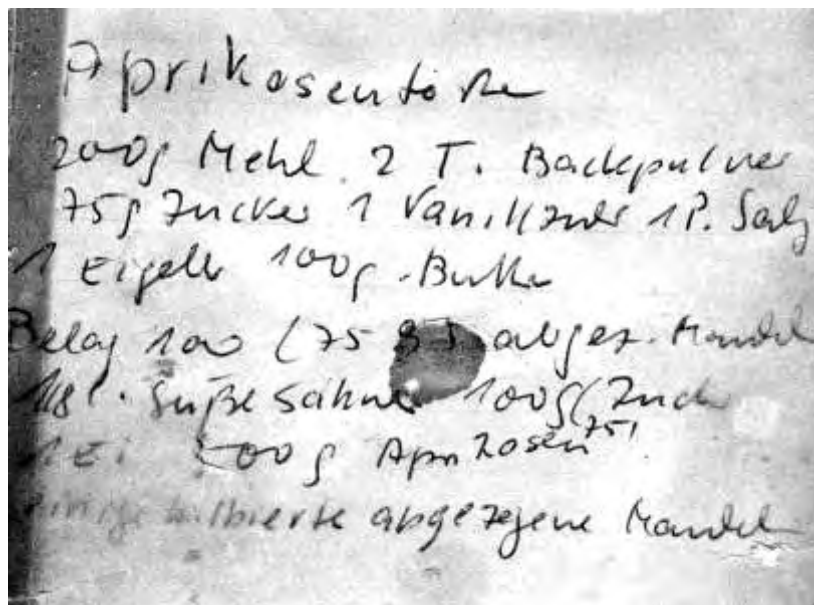 Aprikosentorte
200g Mehl 2 T. Backpulver
75g Zucker 1 Vanillzuck 1 P. Salz
1 Eigelb 100g Butter
Belag 100 (75 g) abgez. Mandel
1/8 l. süße Sahne 100g (Zuck
1 Ei 500g Aprikosen 75)
einige halbierte abgezogene Mandel